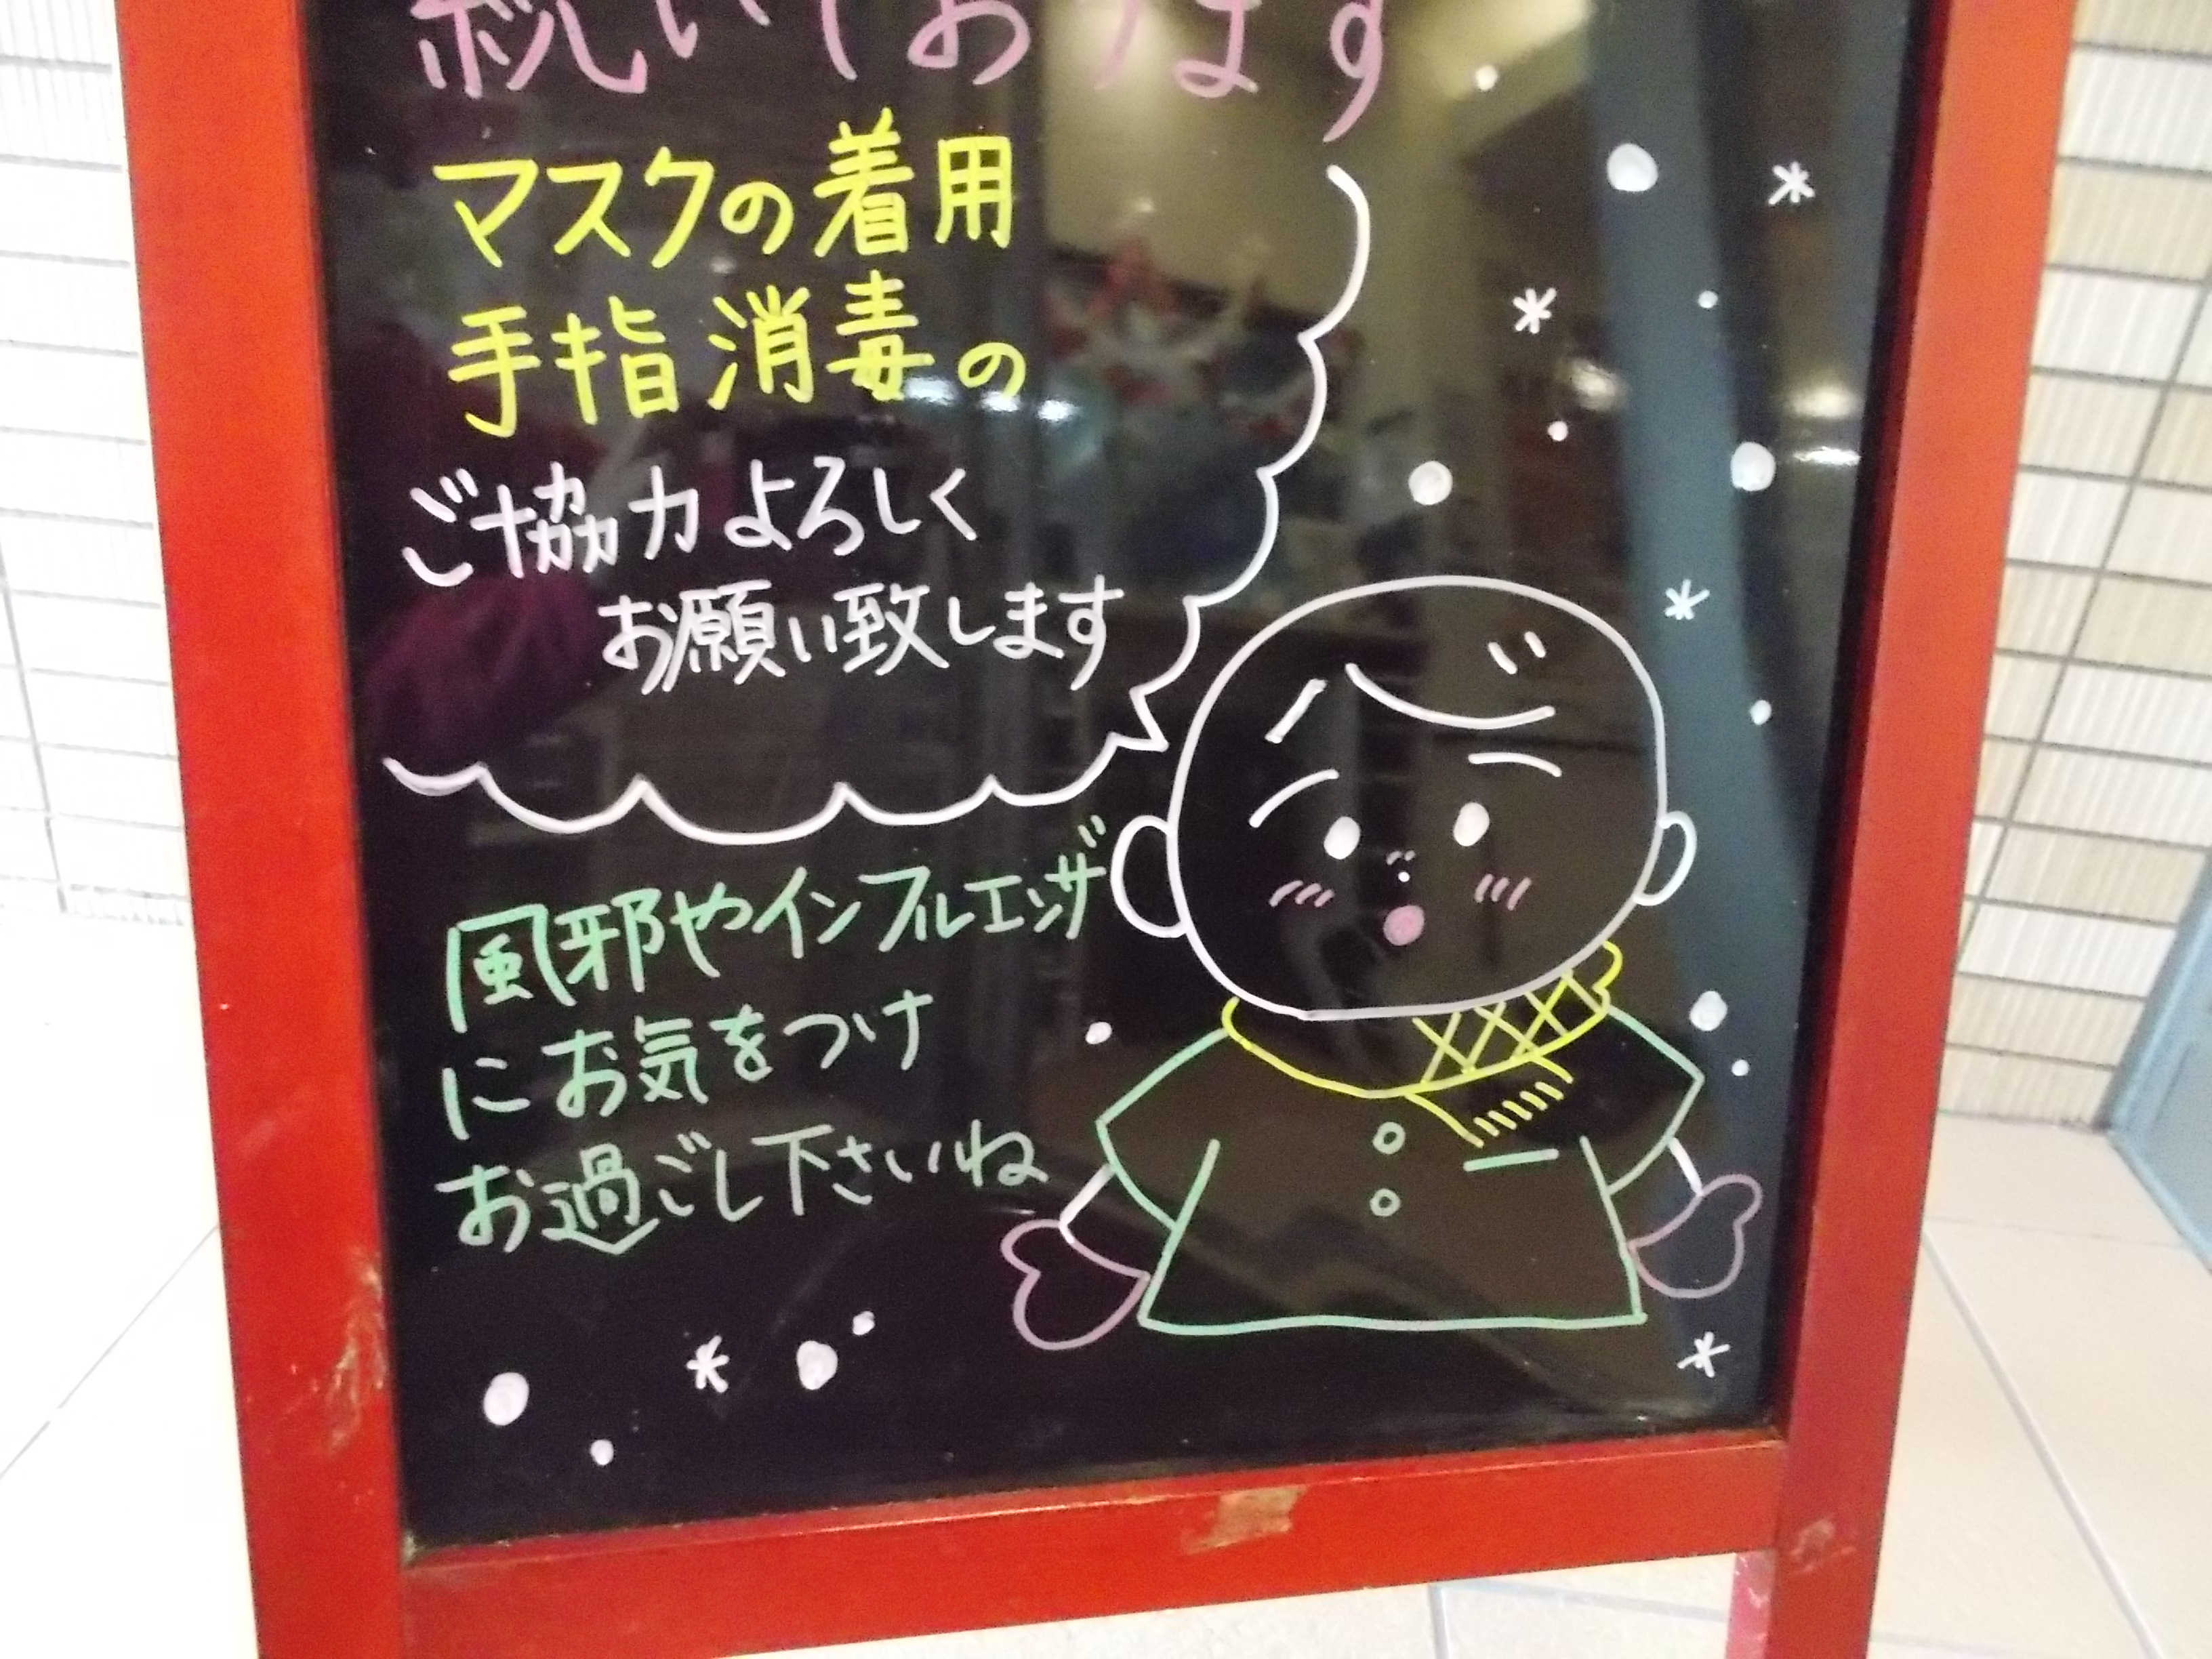 続いております
マスクの着用
手指消毒の
ご協力よろしく
お願い致します
風邪やインフルエンザ
にお気をつけ
お過ごし下さいね